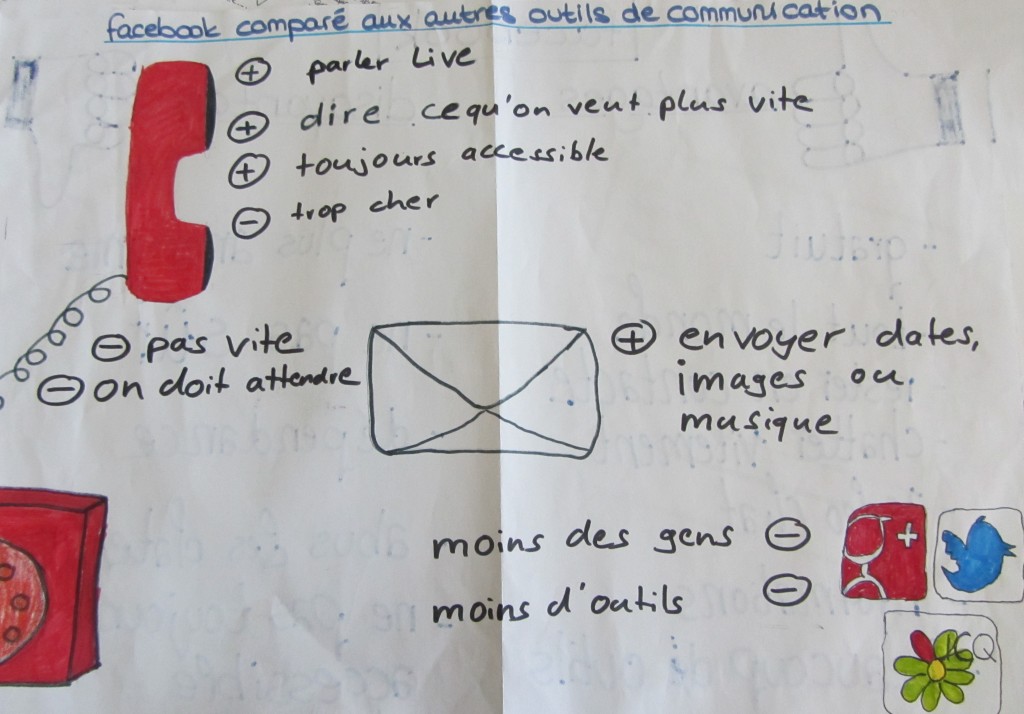 facebook comparé aux autres outils de communication
+ parler Live
+ dire ce qu'on veut plus vite
+ toujours accessible
- trop cher
- pas vite
- on doit attendre
+ envoyer dates,
images ou
musique
moins des gens -
moins d'outils -
g+
ICQ